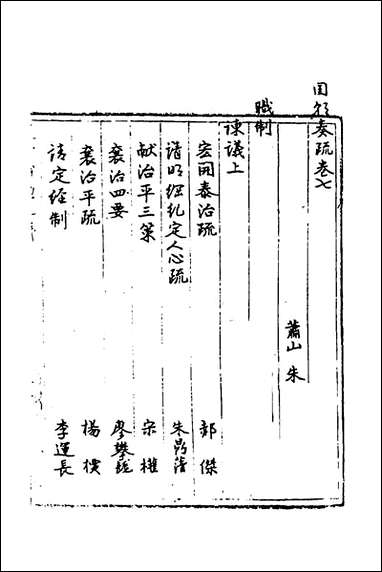 国朝奏疏卷七
蕭山 朱
職制
諫議上
宏開泰治疏 郝傑
請明綱紀定人心疏 朱鼎藩
献治平三策 宋權
襄治四要 廖攀龍
襄治平疏 楊
請定經制 李運長